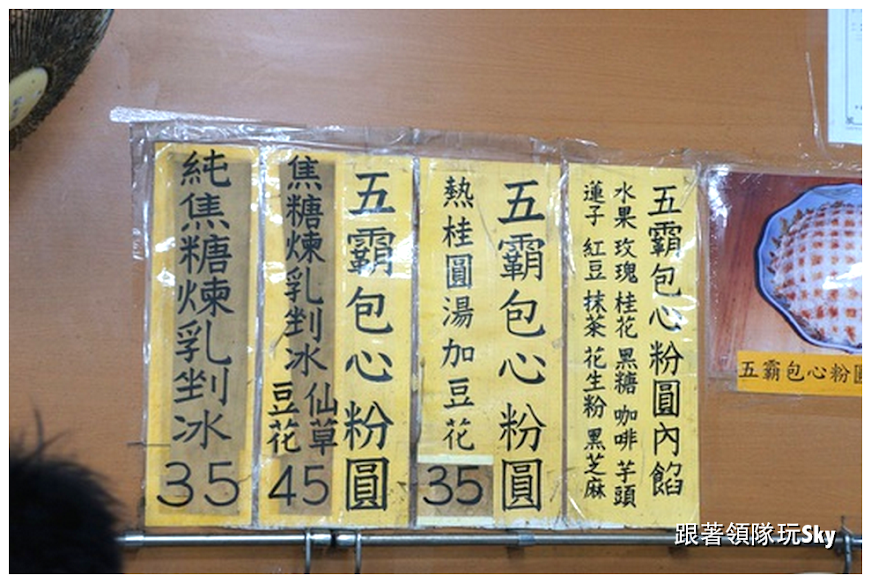 五霸包心粉圓內餡
水果 玫瑰 桂花 黑糖 咖啡 芋頭
蓮子 紅豆 抹茶 花生粉 黑芝麻
五霸包心粉圓
熱桂圓湯加豆花
35
五霸包心粉圓
焦糖煉乳剉冰
仙草
豆花
45
純焦糖煉乳剉冰
35
五霸包心粉圓
跟著領隊玩Sky